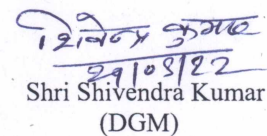 शिवेन्द्र कुमार
29/09/22
Shri Shivendra Kumar
(DGM)